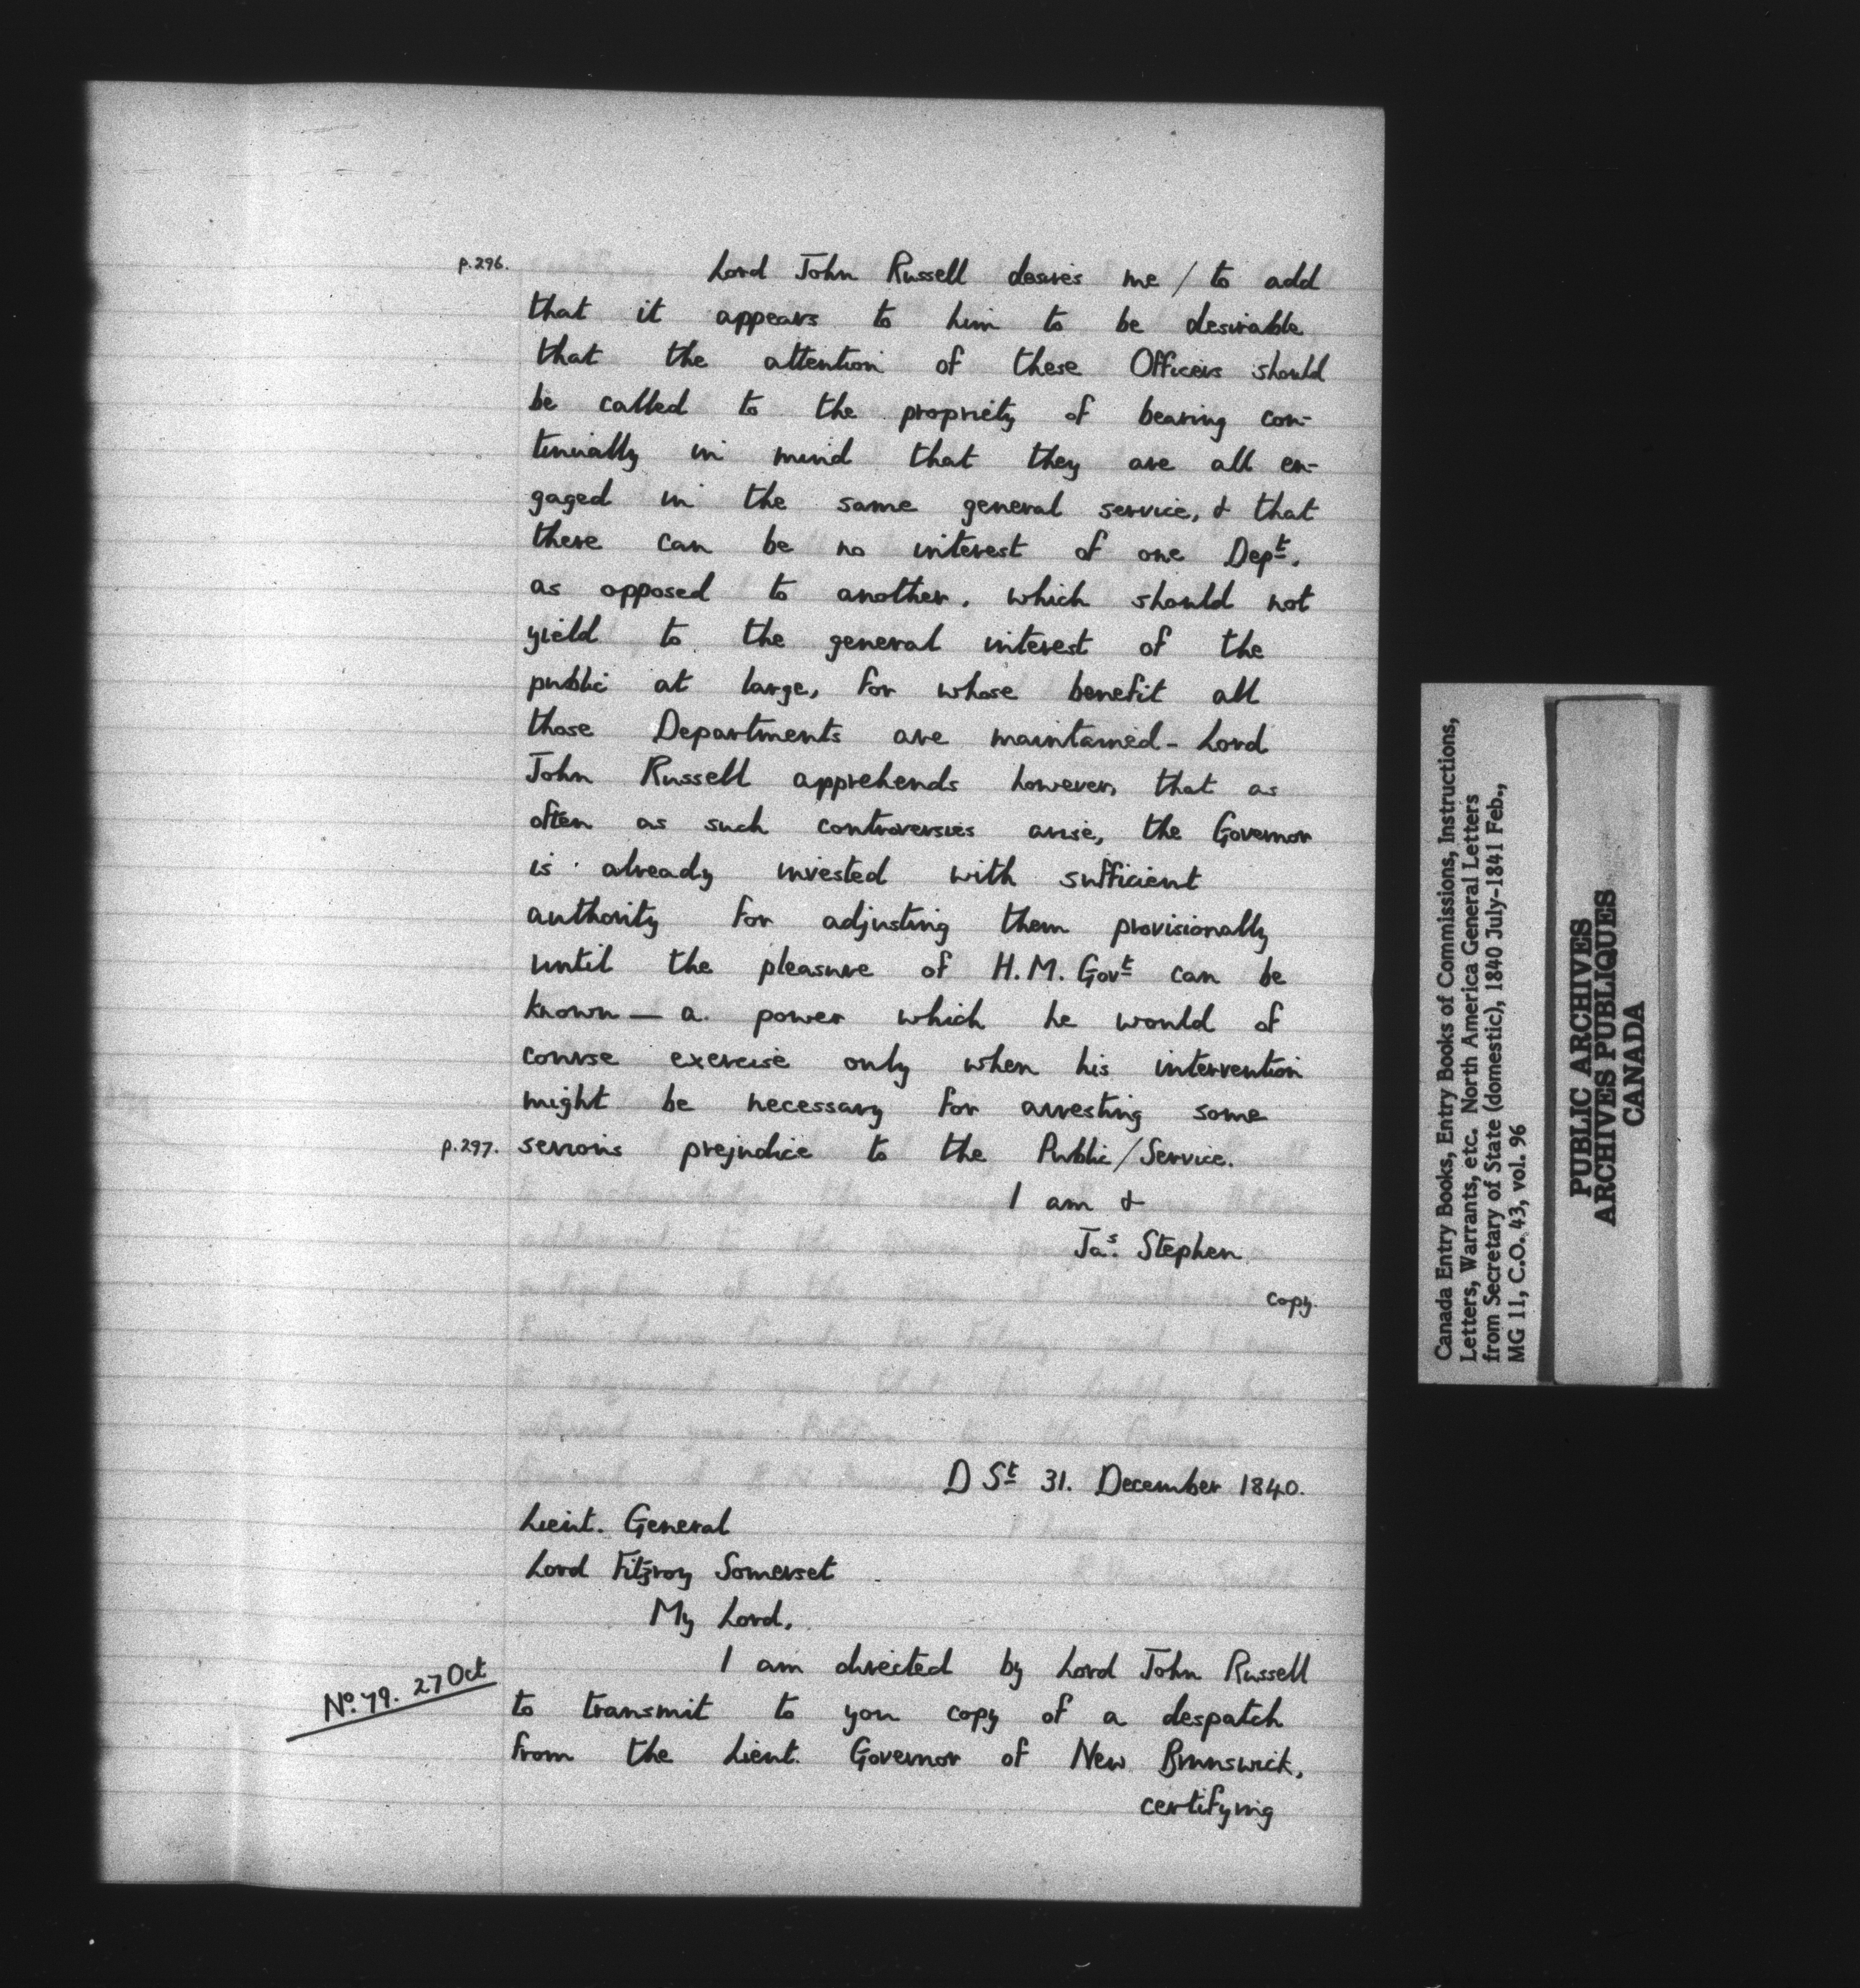 p.296. Lord John Russell desires me / to add
that it appears to him to be desirable
that the attention of these Officers should
be called to the propriety of bearing con-
tinually in mind that they are all en-
gaged in the same general service, & that
there can be no interest of one Dept.
as opposed to another, which should not
yield to the general interest of the
public at large, for whose benefit all
those Departments are maintained - Lord
John Russell apprehends however, that as
often as such controversies arise, the Governor
is already invested with sufficient
authority for adjusting them provisionally
until the pleasure of H.M. Govt can be
known — a power which he would of
course exercise only when his intervention
might be necessary for arresting some
p.297. serious prejudice to the Public / Service.
I am &
Jas. Stephen
copy.
D St 31. December 1840.
Lieut. General
Lord Fitzroy Somerset
My Lord,
I am directed by Lord John Russell
No. 79. 27 Oct
to transmit to you copy of a despatch
from the Lieut. Governor of New Brunswick,
certifying
Canada Entry Books, Entry Books of Commissions, Instructions,
Letters, Warrants, etc. North America General Letters
from Secretary of State (domestic), 1840 July-1841 Feb.,
MG 11, C.O. 43, vol. 96
PUBLIC ARCHIVES
ARCHIVES PUBLIQUES
CANADA